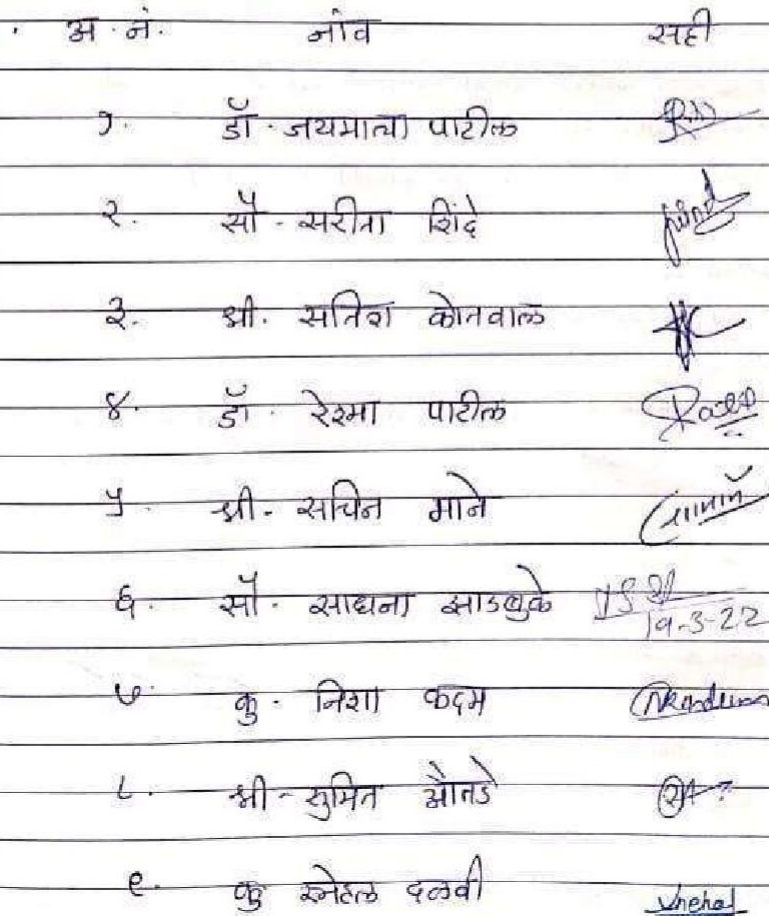 अ. नं. नांव सही
१. डॉ. जयमाला पाटील
२. सौ. सरीता शिंदे
३. श्री. सतिश कोतवाल
४. डॉ. रेश्मा पाटील
५. श्री. सचिन माने
६. सौ. साधना झाडबुके 19-3-22
७. कु. निशा कदम NKadam
८. श्री. सुमित औतडे
९. कु स्नेहल दळवी Snehal